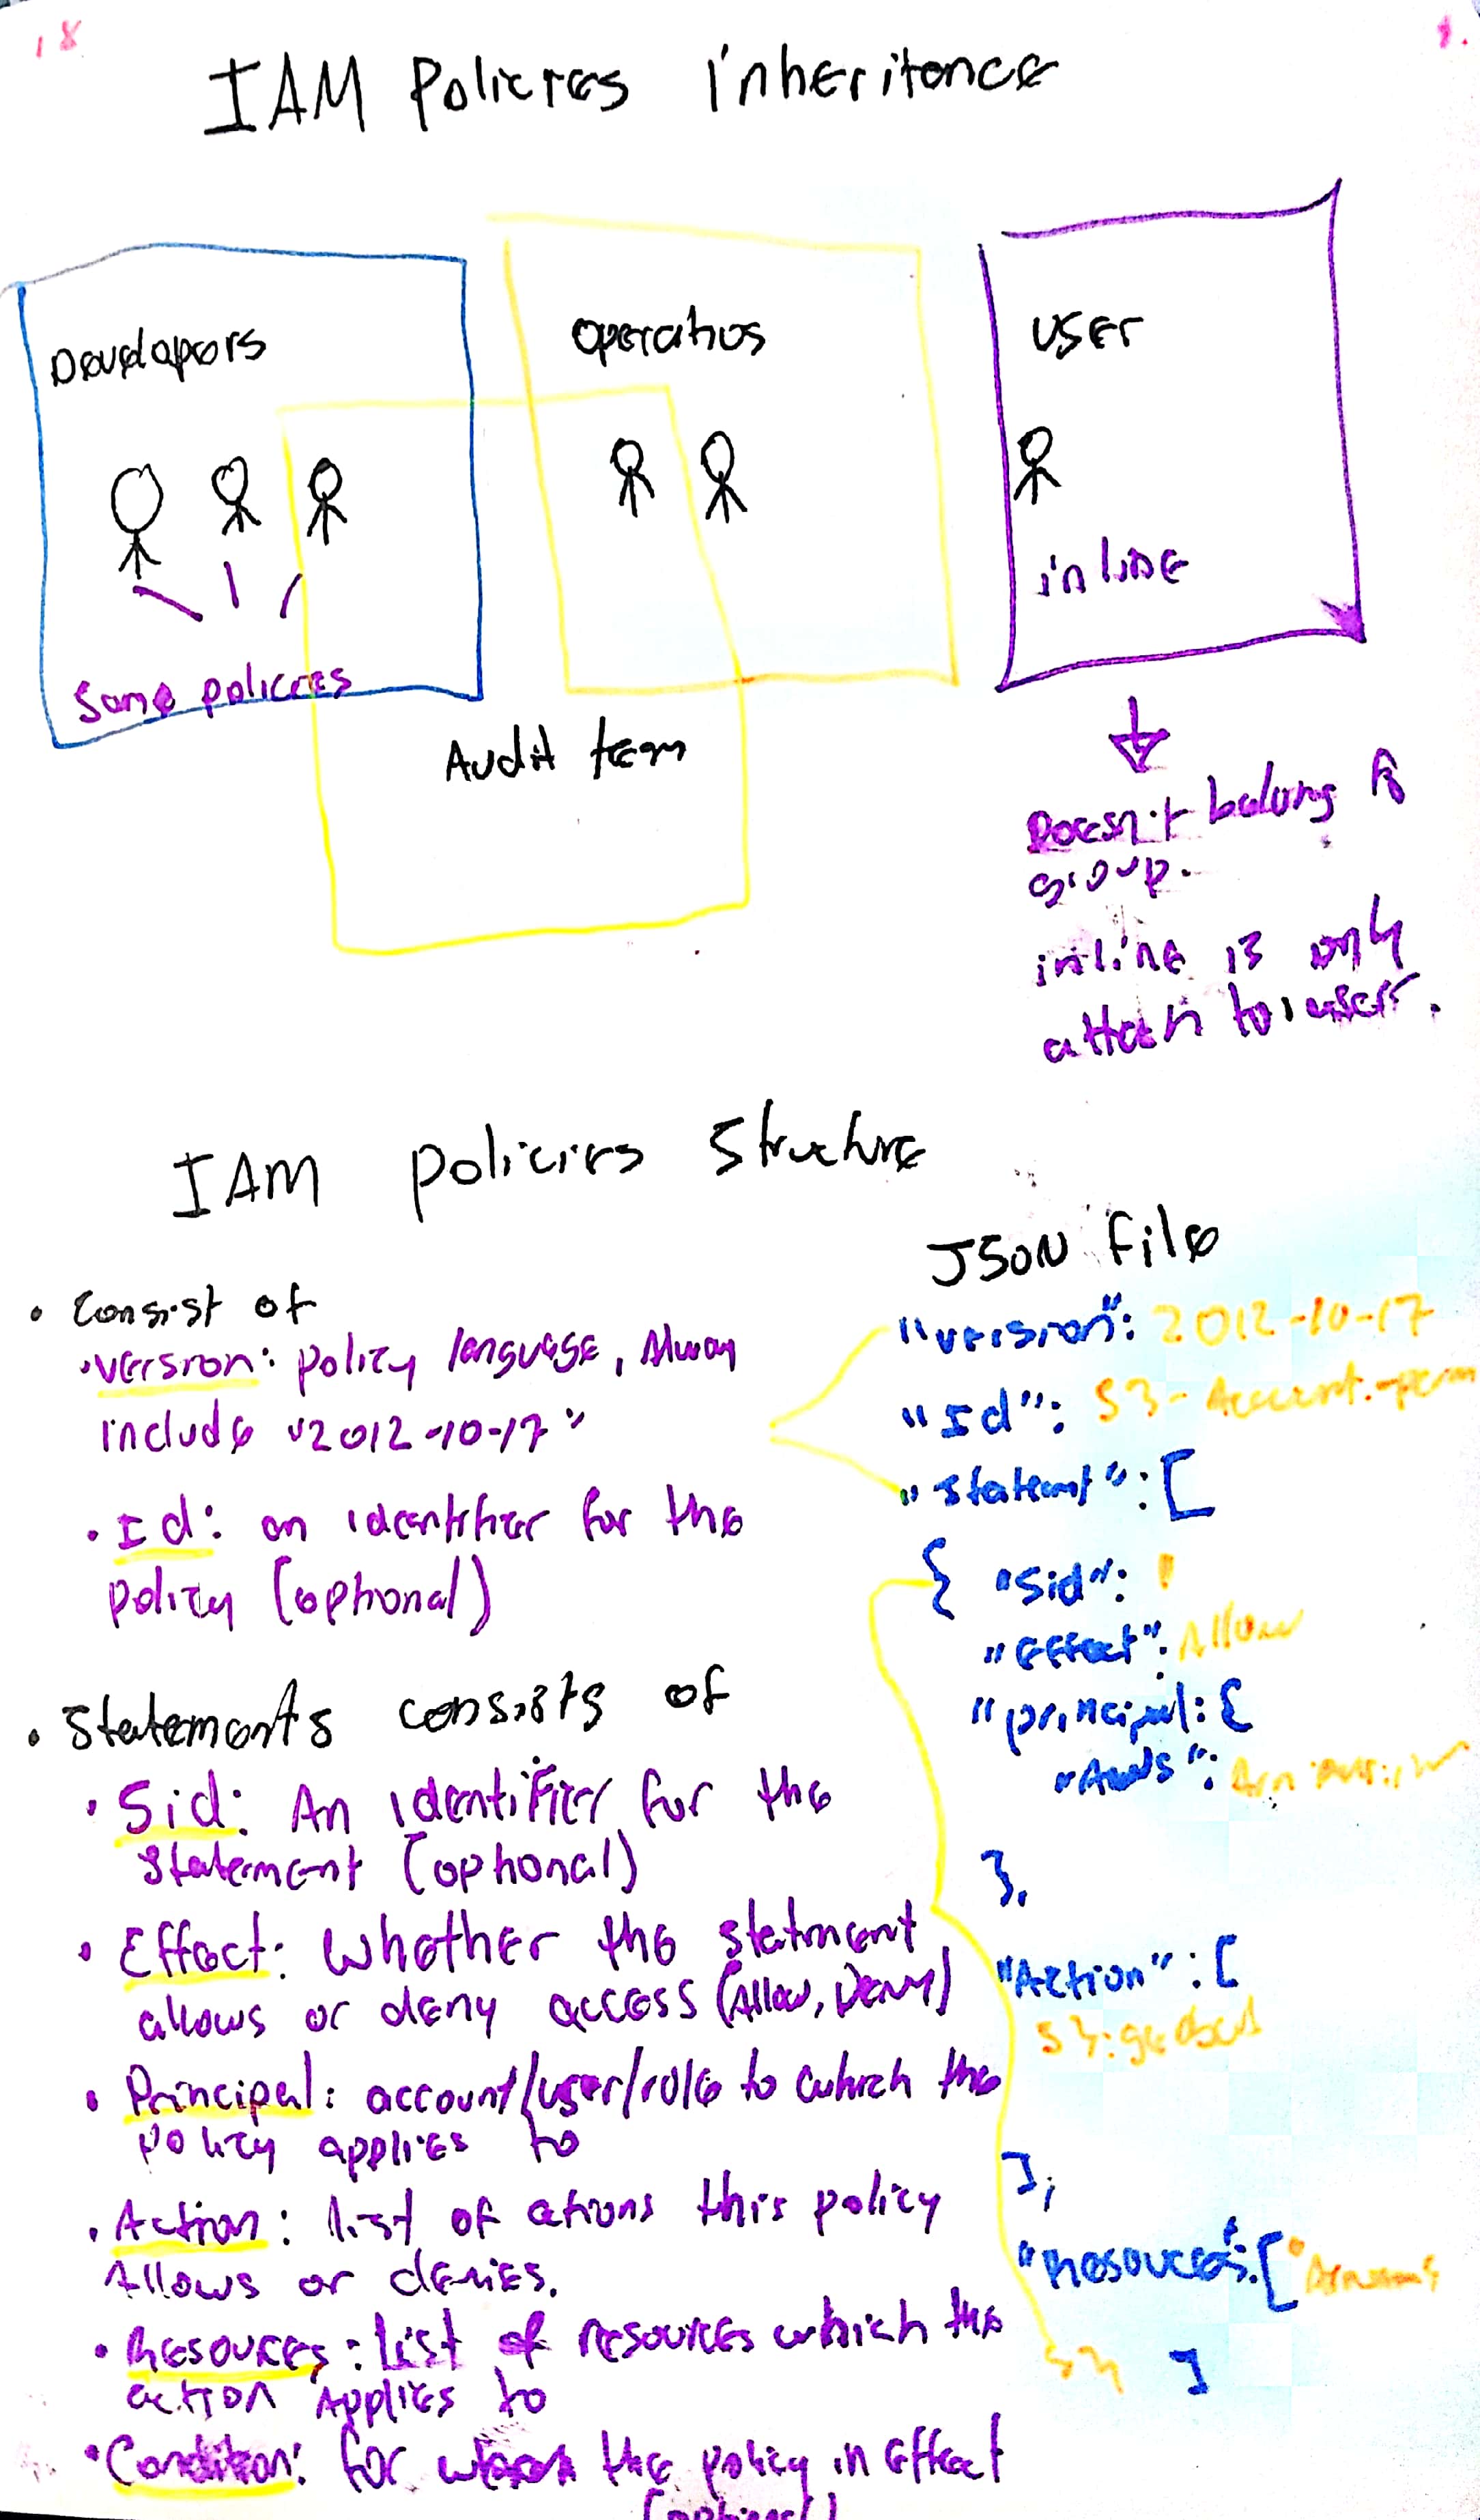 18
IAM Policies inheritance
Developers
operations
user
inline
Same policies
Audit team
Doesn't belong to
group.
inline is only
attach to 1 user.
IAM policies structure
JSON file
• Consist of
• Version: policy language, Alway
include "2012-10-17"
• Id: an identifier for the
policy (optional)
• Statements consists of
• Sid: An identifier for the
statement (optional)
• Effect: Whether the statment
allows or deny access (Allow, Deny)
• Principal: account/user/role to which the
policy applies to
• Action: list of ations this policy
Allows or denies.
• Resources: list of resources which the
action applies to
• Condition: for when the policy in effect
(optional)
"version": 2012-10-17
"Id": S3-Account-perm
"Statemt": [
{ "Sid": 1
"Effect": Allow
"principal: {
"Aws":
},
"Action": [
S3:
],
"Resources: [
]